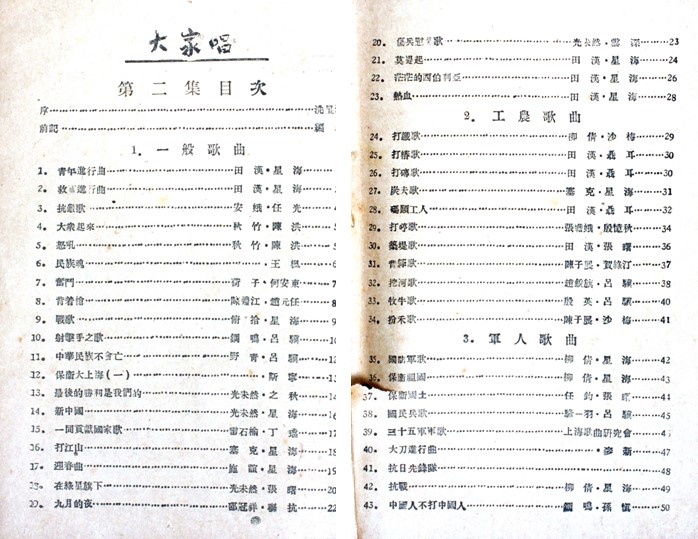 大家唱
第二集目次
序
前記
1. 一般歌曲
1. 青年進行曲 田漢・星海
2. 救亡進行曲 田漢・星海
3. 抗敵歌 安娥・任光
4. 大衆起來 秋竹・陳洪 5
5. 怒吼 秋竹・陳洪
6. 民族魂 王楓 6
7. 奮鬥 何安東 7
8. 背着槍 趙元任 8
9. 戰歌 星海 9
10. 射擊手之歌 鋼鳴・呂驥
11. 中華民族不會亡 野青・呂驥
12. 保衛大上海(一)
13. 最後的勝利是我們的 光未然・之秋 14
14. 新中國 光未然・星海 16
15. 一同貢獻國家歌 雷石榆・丁 17
16. 打江山 塞克・星海 18
17. 迎春曲 施誼・星海 19
18. 在綠星旗下 光未然・張曙 20
20. 九月的夜 聯抗 22
20. 光未然・雲深 23
21. 莫提起 田漢・星海 24
22. 茫茫的西伯利亞 田漢・星海 26
23. 熱血 田漢・星海 28
2. 工農歌曲
24. 打鐵歌 柳倩・沙梅 29
25. 打樁歌 田漢・聶耳 30
26. 打磚歌 田漢・聶耳 30
27. 炭夫歌 塞克・星海 31
28. 碼頭工人 田漢・聶耳 32
29. 打 歌 殷憶秋 34
30. 築堤歌 田漢・張曙 36
31. 歌 陳子展・賀綠汀 37
32. 挖河歌 呂驥 38
33. 牧牛歌 殷英・呂驥 40
34. 割禾歌 陳子展・沙梅 41
3. 軍人歌曲
35. 國防軍歌 柳倩・星海 42
36. 保衛祖國 柳倩・星海 43
37. 保衛國土 任鈞・張 44
38. 國民兵歌 羽・呂驥 45
39. 三十五軍軍歌 上海歌曲研究會 46
40. 大刀進行曲 麥新 47
41. 抗日先鋒隊 48
42. 抗戰 柳倩・星海 49
43. 中國人不打中國人 鋼鳴・孫慎 50